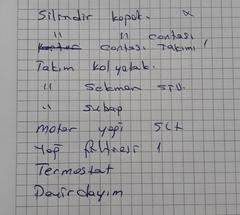 Silindir kapak. x
" " contası
contası takımı 1
Takım kol yatak.
" Sekman STD.
" Subap
motor yağı 5Lt
Yağ filtresi 1
Termostat
Devirdayım